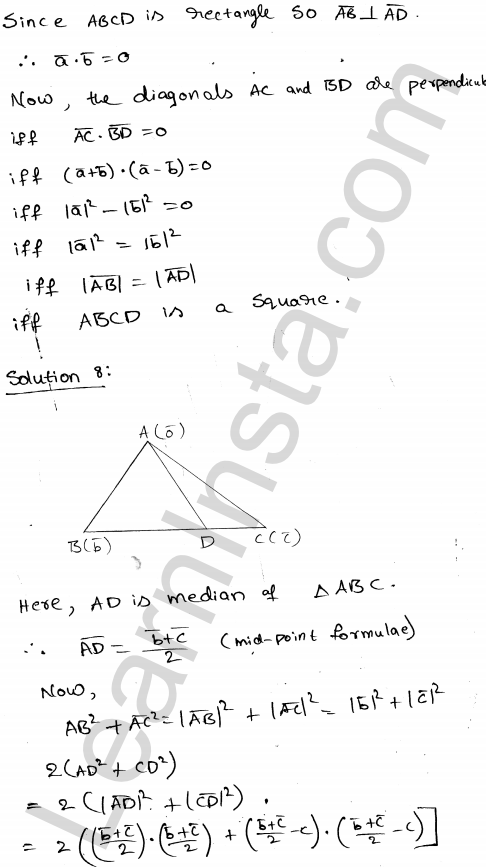 Since ABCD is rectangle so A̅B̅ ⊥ A̅D̅.
∴ a̅·b̅ = 0
Now, the diagonals AC and BD are perpendicul
iff A̅C̅·B̅D̅ = 0
iff (a̅+b̅)·(a̅-b̅) = 0
iff |a̅|² - |b̅|² = 0
iff |a̅|² = |b̅|²
iff |A̅B̅| = |A̅D̅|
iff ABCD is a square.
Solution 8:
A(o̅)
B(b̅) D C(c̅)
Here, AD is median of △ABC.
∴ A̅D̅ = (b̅+c̅)/2 (mid-point formulae)
Now,
AB² + AC² = |A̅B̅|² + |A̅C̅|² = |b̅|² + |c̅|²
2(AD² + CD²)
= 2(|A̅D̅|² + |C̅D̅|²).
= 2((b̅+c̅)/2)·((b̅+c̅)/2) + ((b̅+c̅)/2 - c)·((b̅+c̅)/2 - c)]
LearnInsta.com